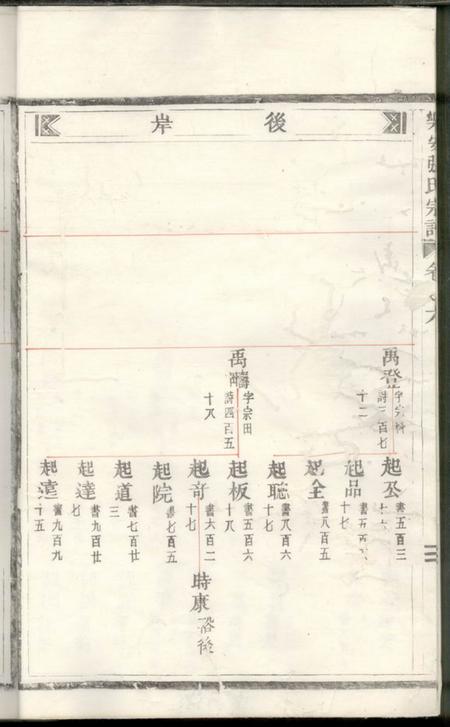 後岸
氏宗譜
禹登
字宗科
詩三百七
十二
禹疇
字宗田
詩四百五
十八
起丕
書五百三
起品
十七
起全
書八百五
起聰
書八百六
十七
起板
書五百六
十八
起奇
書六百二
十七
起院
書七百五
起道
書七百廿
三
起達
書九百廿
七
起遠
書九百九
十五
時康